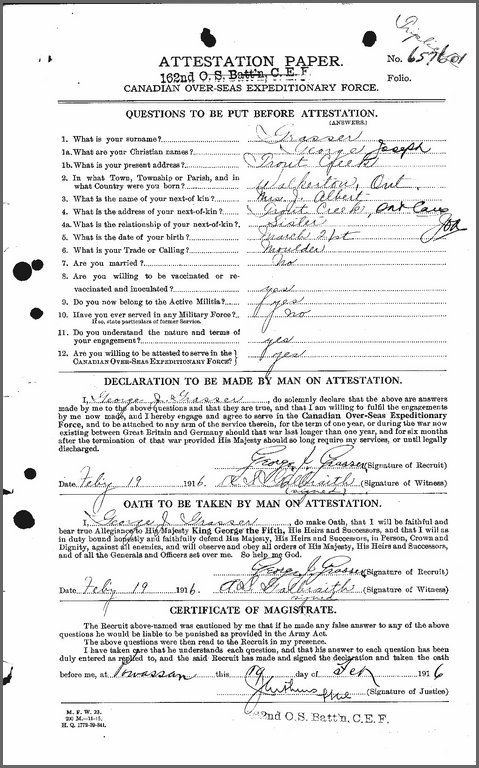 Triplicate
ATTESTATION PAPER.
No. 657601
162nd O. S. Batt'n, C. E. F.
Folio.
CANADIAN OVER-SEAS EXPEDITIONARY FORCE.
QUESTIONS TO BE PUT BEFORE ATTESTATION.
(ANSWERS.)
1. What is your surname? Grasser
1a. What are your Christian names? George Joseph
1b. What is your present address? Trout Creek
2. In what Town, Township or Parish, and in
what Country were you born? Walkerton, Ont.
3. What is the name of your next-of-kin? Mrs. J. Albert
4. What is the address of your next-of-kin? Trout Creek, Ont
4a. What is the relationship of your next-of-kin? Sister
5. What is the date of your birth? March 21st
6. What is your Trade or Calling? Moulder
7. Are you married? No
8. Are you willing to be vaccinated or re-
vaccinated and inoculated? yes
9. Do you now belong to the Active Militia? yes
10. Have you ever served in any Military Force? No
If so, state particulars of former Service.
11. Do you understand the nature and terms of
your engagement? yes
12. Are you willing to be attested to serve in the
CANADIAN OVER-SEAS EXPEDITIONARY FORCE? yes
DECLARATION TO BE MADE BY MAN ON ATTESTATION.
I, George J. Grasser, do solemnly declare that the above are answers
made by me to the above questions and that they are true, and that I am willing to fulfil the engagements
by me now made, and I hereby engage and agree to serve in the Canadian Over-Seas Expeditionary
Force, and to be attached to any arm of the service therein, for the term of one year, or during the war now
existing between Great Britain and Germany should that war last longer than one year, and for six months
after the termination of that war provided His Majesty should so long require my services, or until legally
discharged.
George J. Grasser (Signature of Recruit)
Date Feby 19 1916. Galbraith (Signature of Witness)
(signed)
OATH TO BE TAKEN BY MAN ON ATTESTATION.
I, George J. Grasser, do make Oath, that I will be faithful and
bear true Allegiance to His Majesty King George the Fifth, His Heirs and Successors, and that I will as
in duty bound honestly and faithfully defend His Majesty, His Heirs and Successors, in Person, Crown and
Dignity, against all enemies, and will observe and obey all orders of His Majesty, His Heirs and Successors,
and of all the Generals and Officers set over me. So help me God.
George J. Grasser (Signature of Recruit)
Date Feby 19 1916 Galbraith (Signature of Witness)
signed
CERTIFICATE OF MAGISTRATE.
The Recruit above-named was cautioned by me that if he made any false answer to any of the above
questions he would be liable to be punished as provided in the Army Act.
The above questions were then read to the Recruit in my presence.
I have taken care that he understands each question, and that his answer to each question has been
duly entered as replied to, and the said Recruit has made and signed the declaration and taken the oath
before me, at Powassan this 19 day of Feb 1916
(Signature of Justice)
M. F. W. 23.
200 M.-11-15.
H. Q. 1772-39-841.
162nd O.S. Batt'n, C.E.F.